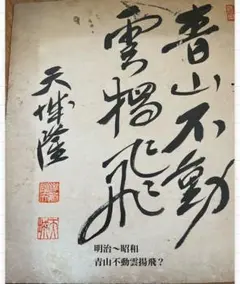 青山不動
雲 飛
天城隆
明治～昭和
青山不動雲揚飛？